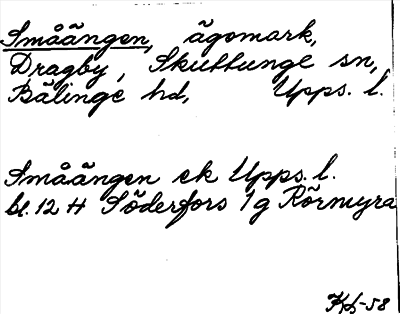 Småängen, ägomark,
Dragby, Skuttunge sn,
Bälinge hd, Upps. l.
Småängen ek Upps. l.
bl. 12 H Söderfors 1g Rörmyra